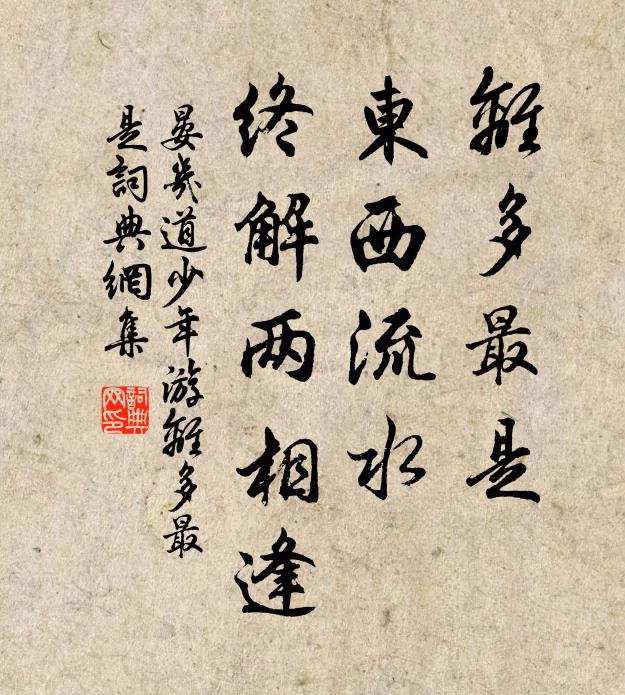 離多最是
東西流水
終解两相逢
晏幾道少年游離多最
是詞典網集
詞典
网印